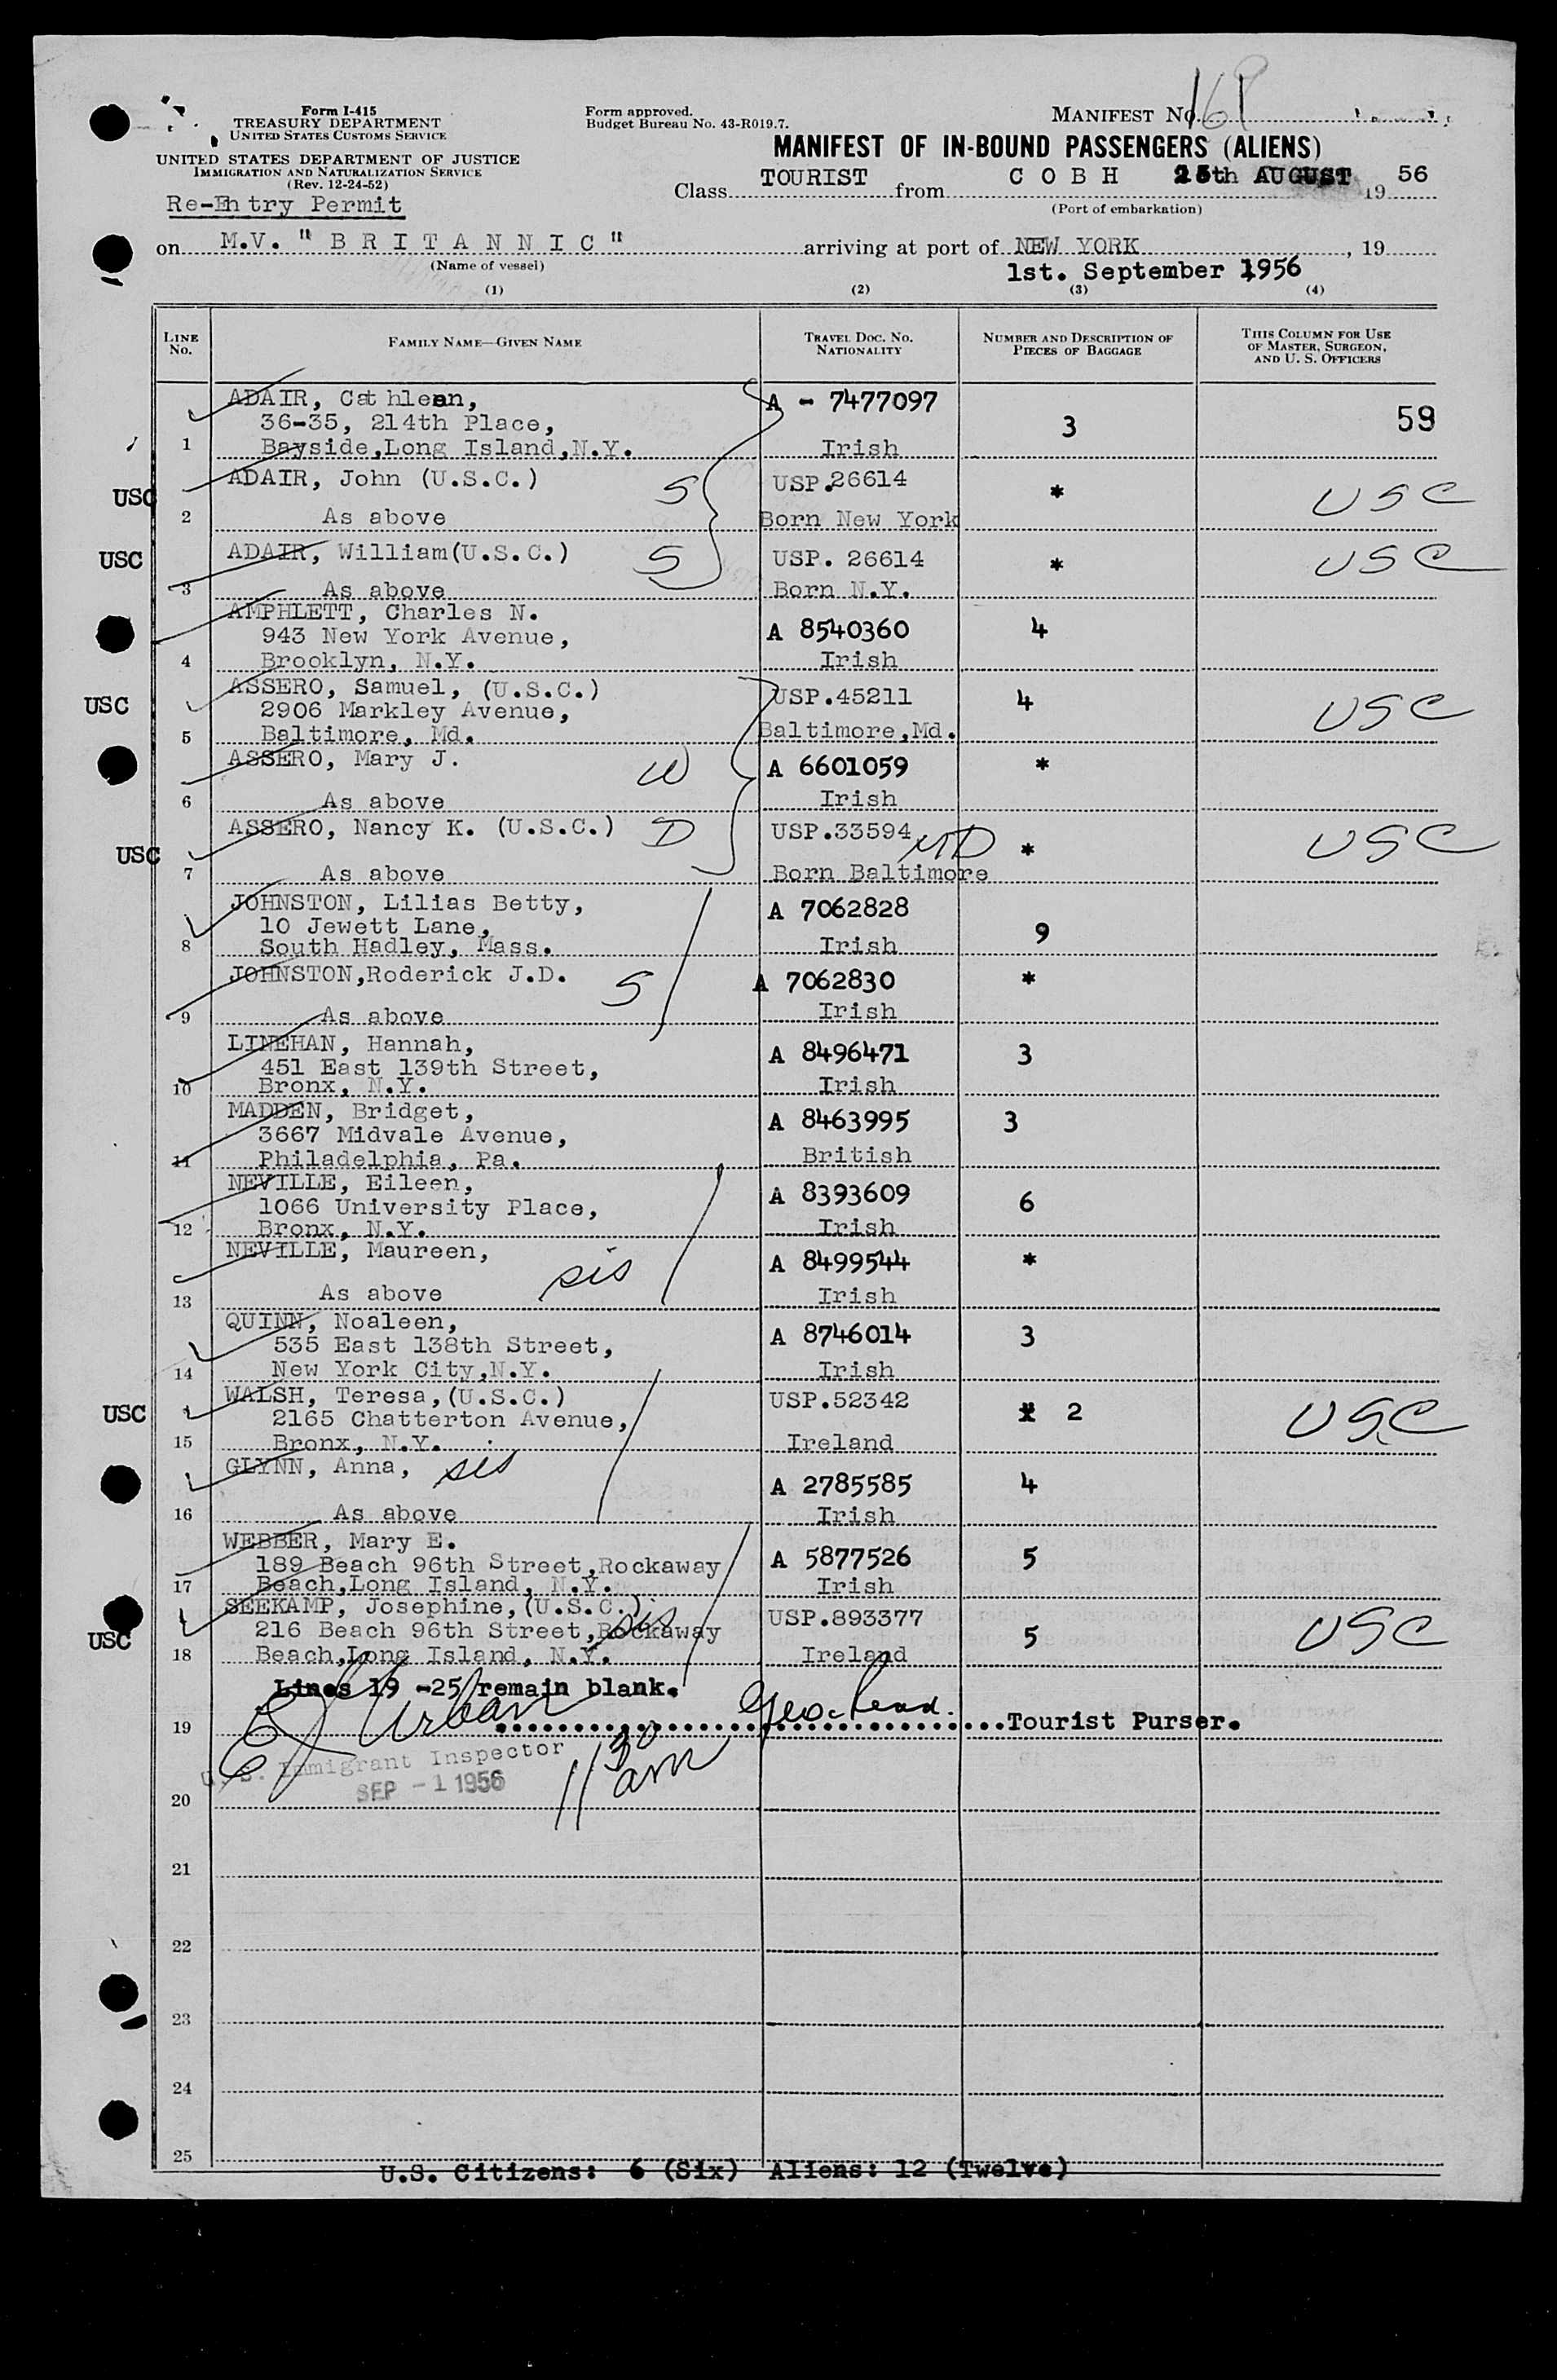 Form I-415
TREASURY DEPARTMENT
UNITED STATES CUSTOMS SERVICE
UNITED STATES DEPARTMENT OF JUSTICE
IMMIGRATION AND NATURALIZATION SERVICE
(Rev. 12-24-52)
Re-Entry Permit
Form approved.
Budget Bureau No. 43-R019.7.
MANIFEST No. 169
MANIFEST OF IN-BOUND PASSENGERS (ALIENS)
Class TOURIST from C O B H 25th AUGUST 1956
(Port of embarkation)
on M.V. "B R I T A N N I C" arriving at port of NEW YORK, 19
(Name of vessel) 1st. September 1956
(1) (2) (3) (4)
LINE No. FAMILY NAME—GIVEN NAME TRAVEL DOC. NO. NATIONALITY NUMBER AND DESCRIPTION OF PIECES OF BAGGAGE THIS COLUMN FOR USE OF MASTER, SURGEON, AND U. S. OFFICERS
ADAIR, Cathleen, A - 7477097
36-35, 214th Place, 3 59
1 Bayside,Long Island,N.Y. Irish
USC ADAIR, John (U.S.C.) S USP.26614 * USC
2 As above Born New York
USC ADAIR, William(U.S.C.) S USP. 26614 * USC
3 As above Born N.Y.
AMPHLETT, Charles N.
943 New York Avenue, A 8540360 4
4 Brooklyn, N.Y. Irish
USC ASSERO, Samuel, (U.S.C.) USP.45211 4 USC
2906 Markley Avenue,
5 Baltimore, Md. Baltimore,Md.
ASSERO, Mary J. W A 6601059 *
6 As above Irish
USC ASSERO, Nancy K. (U.S.C.) D USP.33594 MD * USC
7 As above Born Baltimore
JOHNSTON, Lilias Betty, A 7062828
10 Jewett Lane, 9
8 South Hadley, Mass. Irish
JOHNSTON,Roderick J.D. S A 7062830 *
9 As above Irish
LINEHAN, Hannah, A 8496471 3
451 East 139th Street,
10 Bronx, N.Y. Irish
MADDEN, Bridget, A 8463995 3
3667 Midvale Avenue,
11 Philadelphia, Pa. British
NEVILLE, Eileen, A 8393609 6
1066 University Place,
12 Bronx, N.Y. Irish
NEVILLE, Maureen, sis A 8499544 *
13 As above Irish
QUINN, Noaleen, A 8746014 3
535 East 138th Street,
14 New York City,N.Y. Irish
USC WALSH, Teresa,(U.S.C.) USP.52342 2 USC
2165 Chatterton Avenue,
15 Bronx, N.Y. Ireland
GLYNN, Anna, sis A 2785585 4
16 As above Irish
WEBBER, Mary E.
189 Beach 96th Street,Rockaway A 5877526 5
17 Beach,Long Island, N.Y. Irish
SEEKAMP, Josephine,(U.S.C.) sis USP.893377
USC 216 Beach 96th Street,Rockaway 5 USC
18 Beach,Long Island, N.Y. Ireland
Lines 19 -25 remain blank.
19 EJ Urban Tourist Purser.
U.S. Immigrant Inspector 11 30 am
SEP - 1 1956
20
21
22
23
24
25
U.S. Citizens: 6 (Six) Aliens: 12 (Twelve)